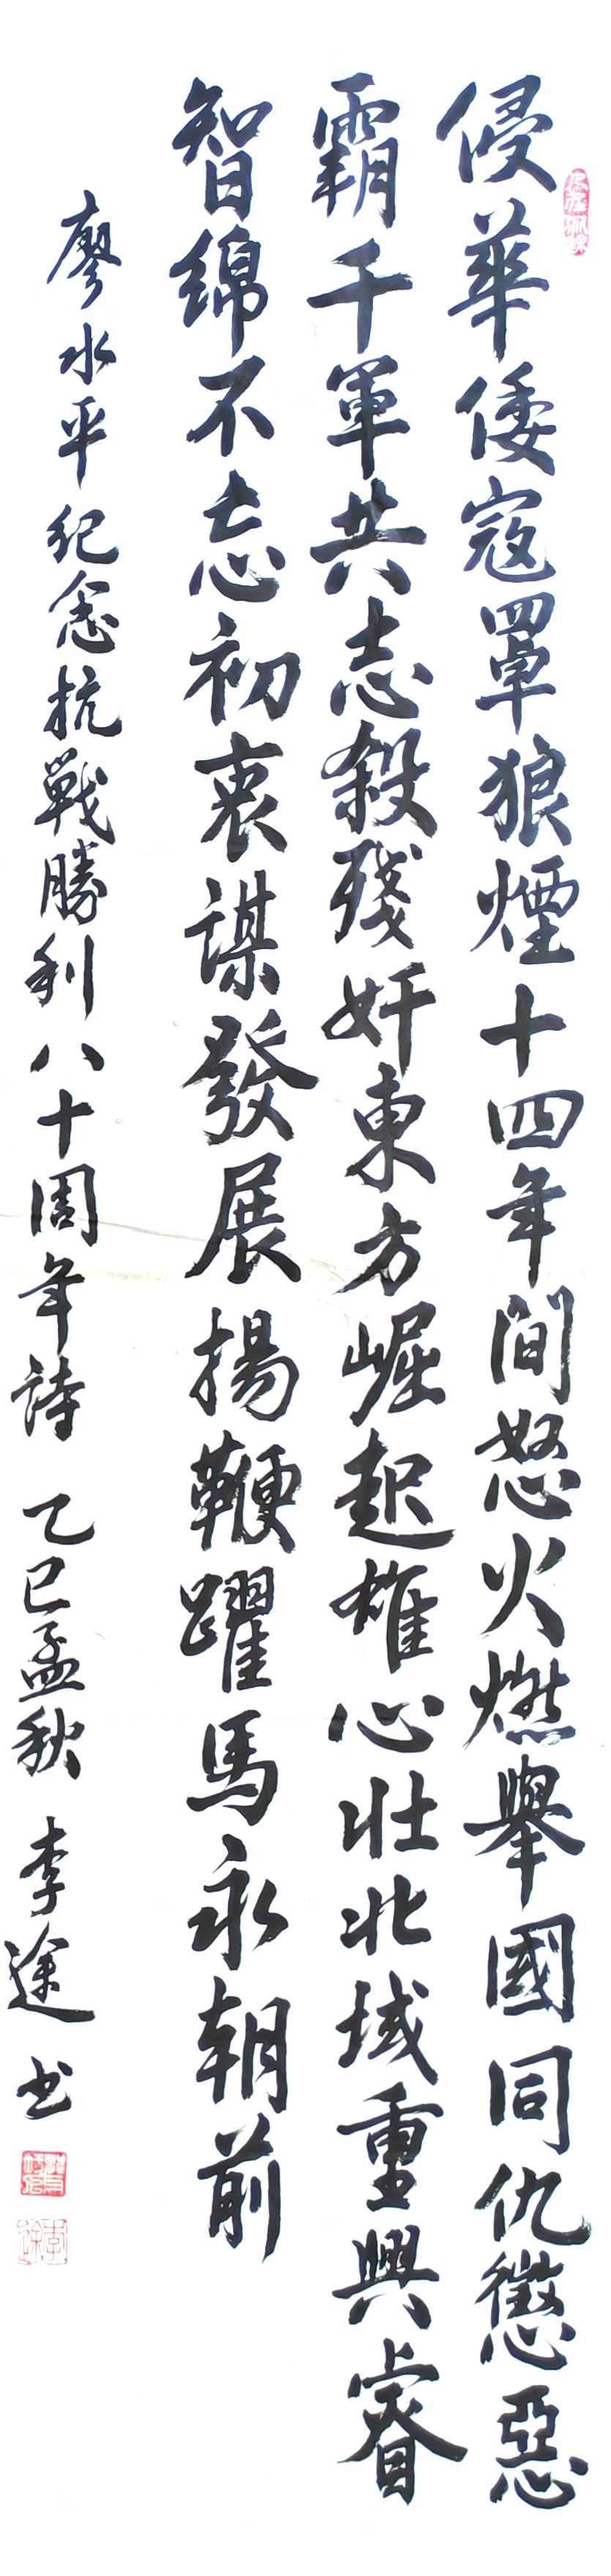 侵華倭寇罩狼煙十四年间怒火燃舉國同仇懲惡
霸千軍共志殺殘奸東方崛起雄心壯北域重興睿
智绵不忘初衷謀發展揚鞭躍馬永朝前
廖水平纪念抗戰勝利八十周年詩 乙巳孟秋 李途书
李途